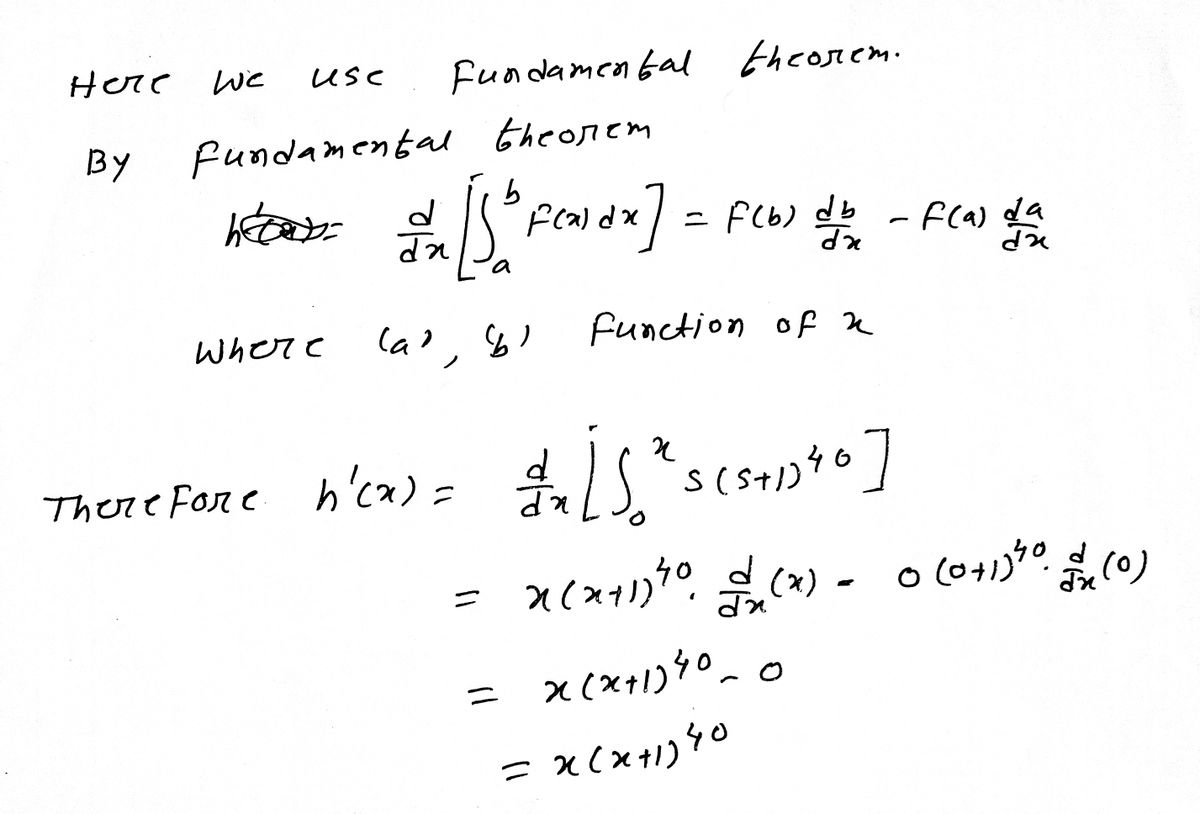 Here we use Fundamental theorem.
By Fundamental theorem
d/dx [∫_a^b F(x) dx] = F(b) db/dx - F(a) da/dx
where 'a', 'b' function of x
Therefore h'(x) = d/dx [∫_0^x s(s+1)^40]
= x(x+1)^40 . d/dx (x) - 0(0+1)^40 . d/dx (0)
= x(x+1)^40 - 0
= x(x+1)^40